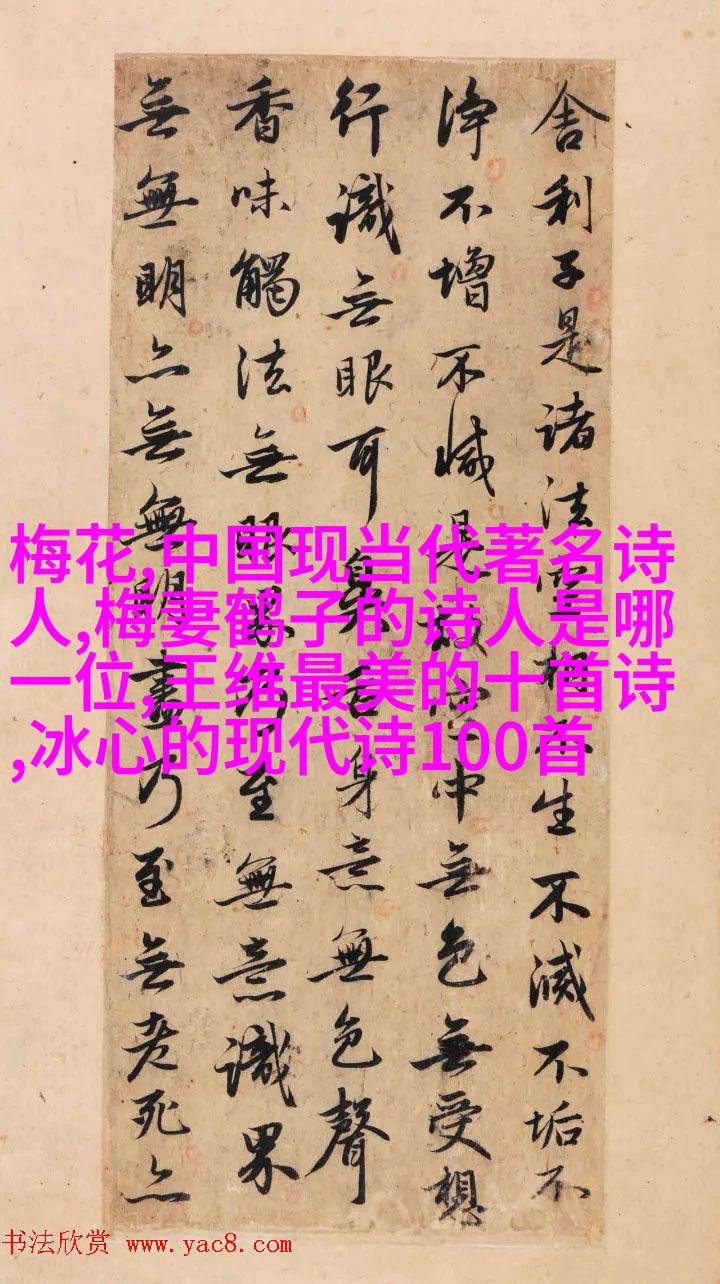 舍利子是諸法空相不生不滅不垢不
淨不增不減是故空中無色無受想
行識无眼耳鼻舌身意無色聲
香味觸法無眼界乃至無意識界
無無明亦無無明盡乃至無老死亦
梅花,中国现当代著名诗
人,梅妻鹤子的诗人是哪
一位,王维最美的十首诗
,冰心的现代诗100首
书法欣赏 www.yac8.com